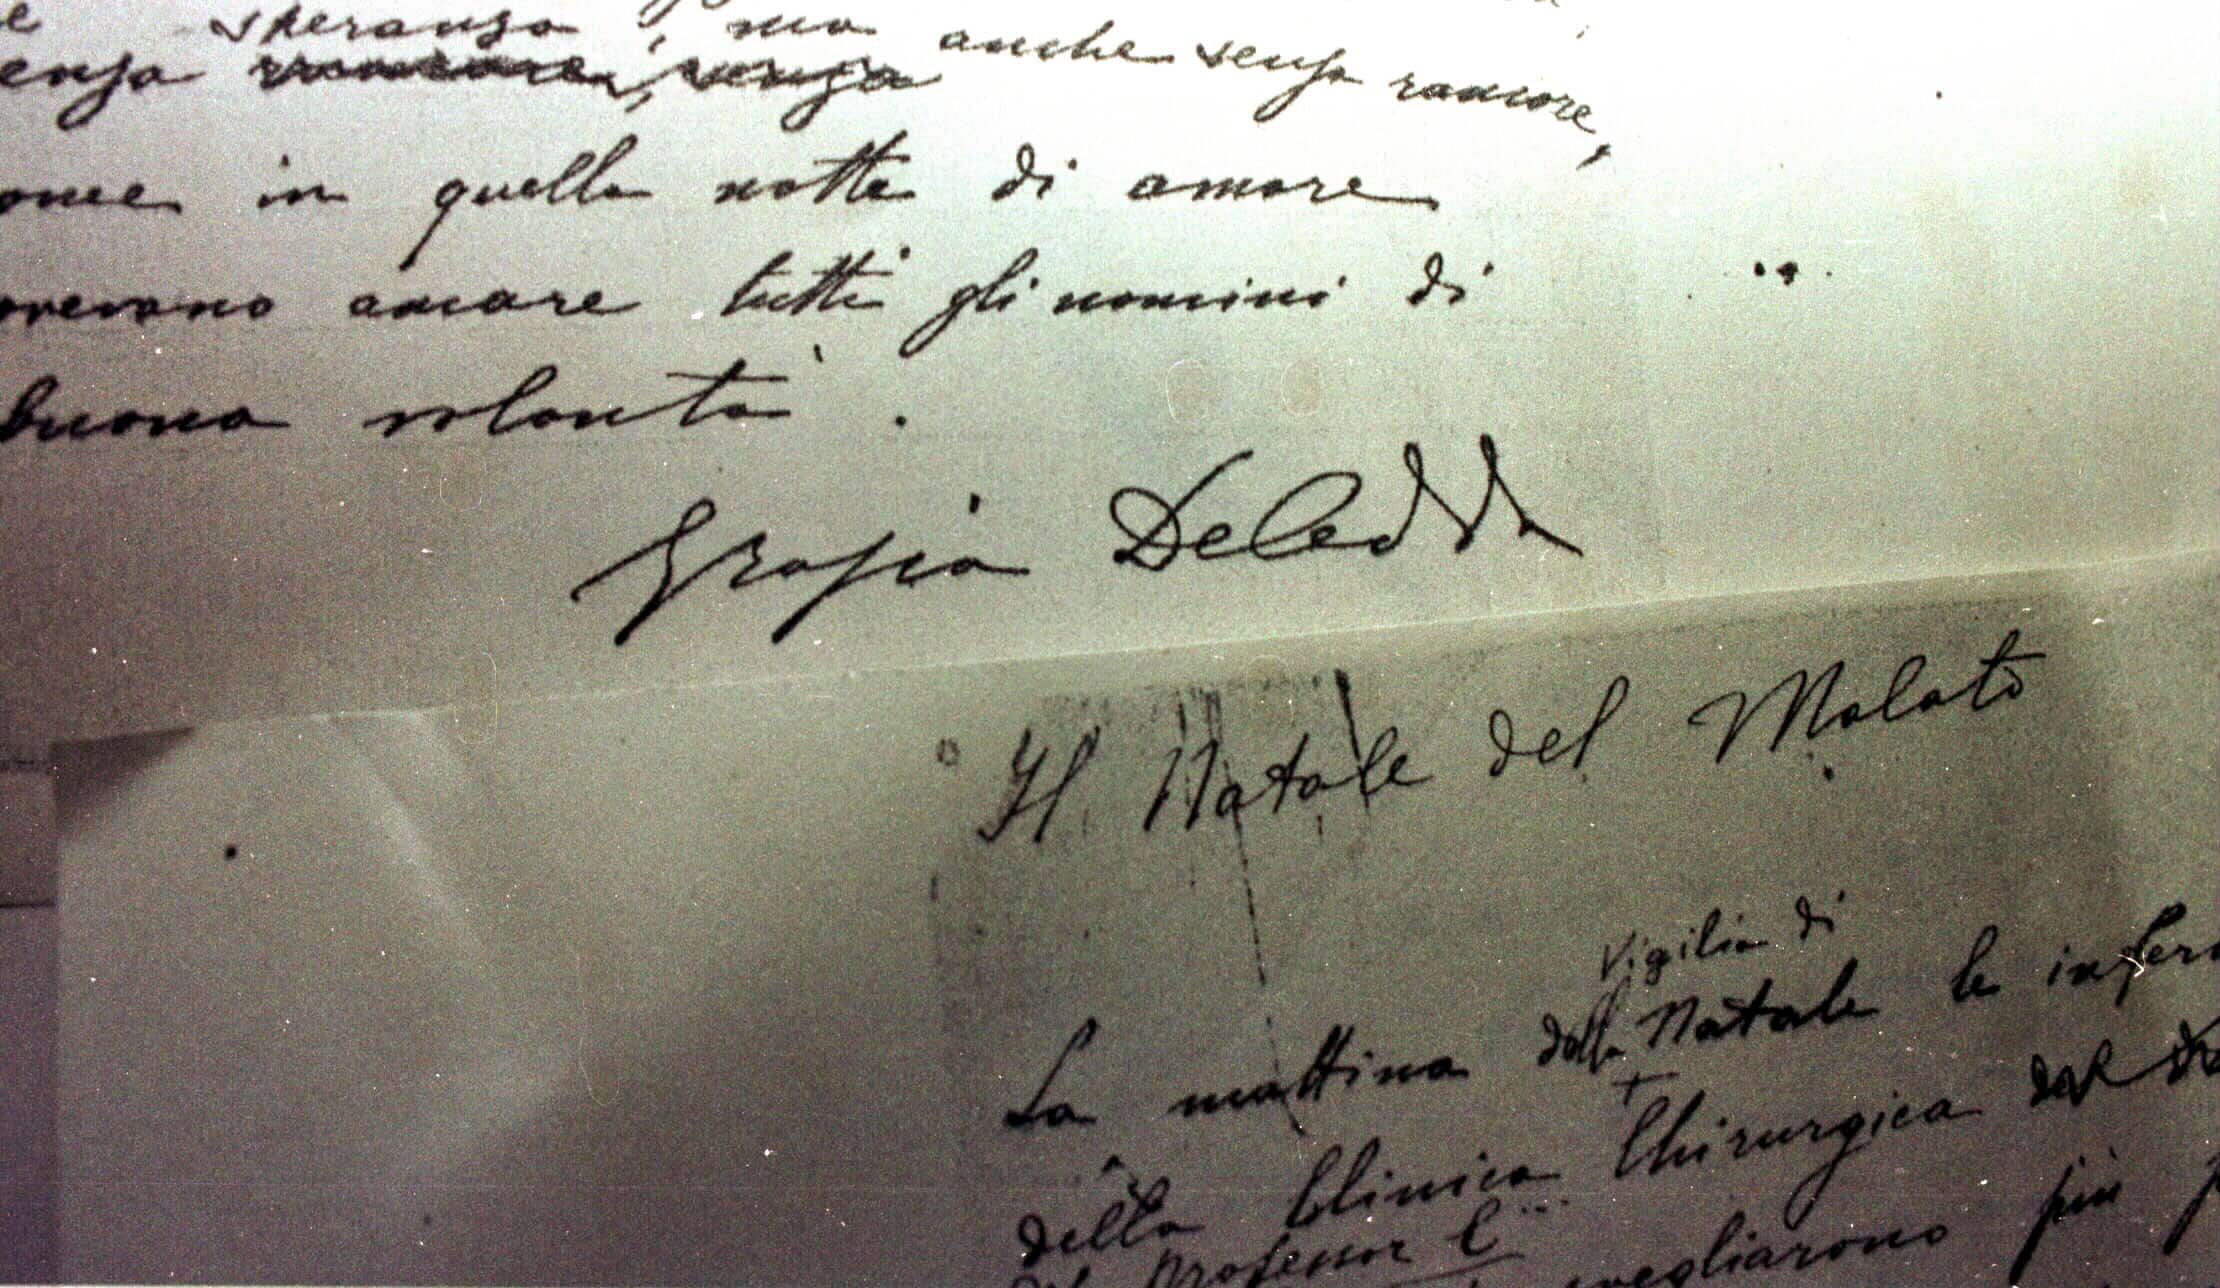 e speranza, ma anche senza rancore,
enza rancore, senza
ome in quella notte di amore
ovevano amare tutti gli uomini di
buona volontà.
Grazia Deledda
Il Natale del Malato
Vigilia di
La mattina della Natale le infer
della Clinica Chirurgica del
del Professor C...
svegliarono più